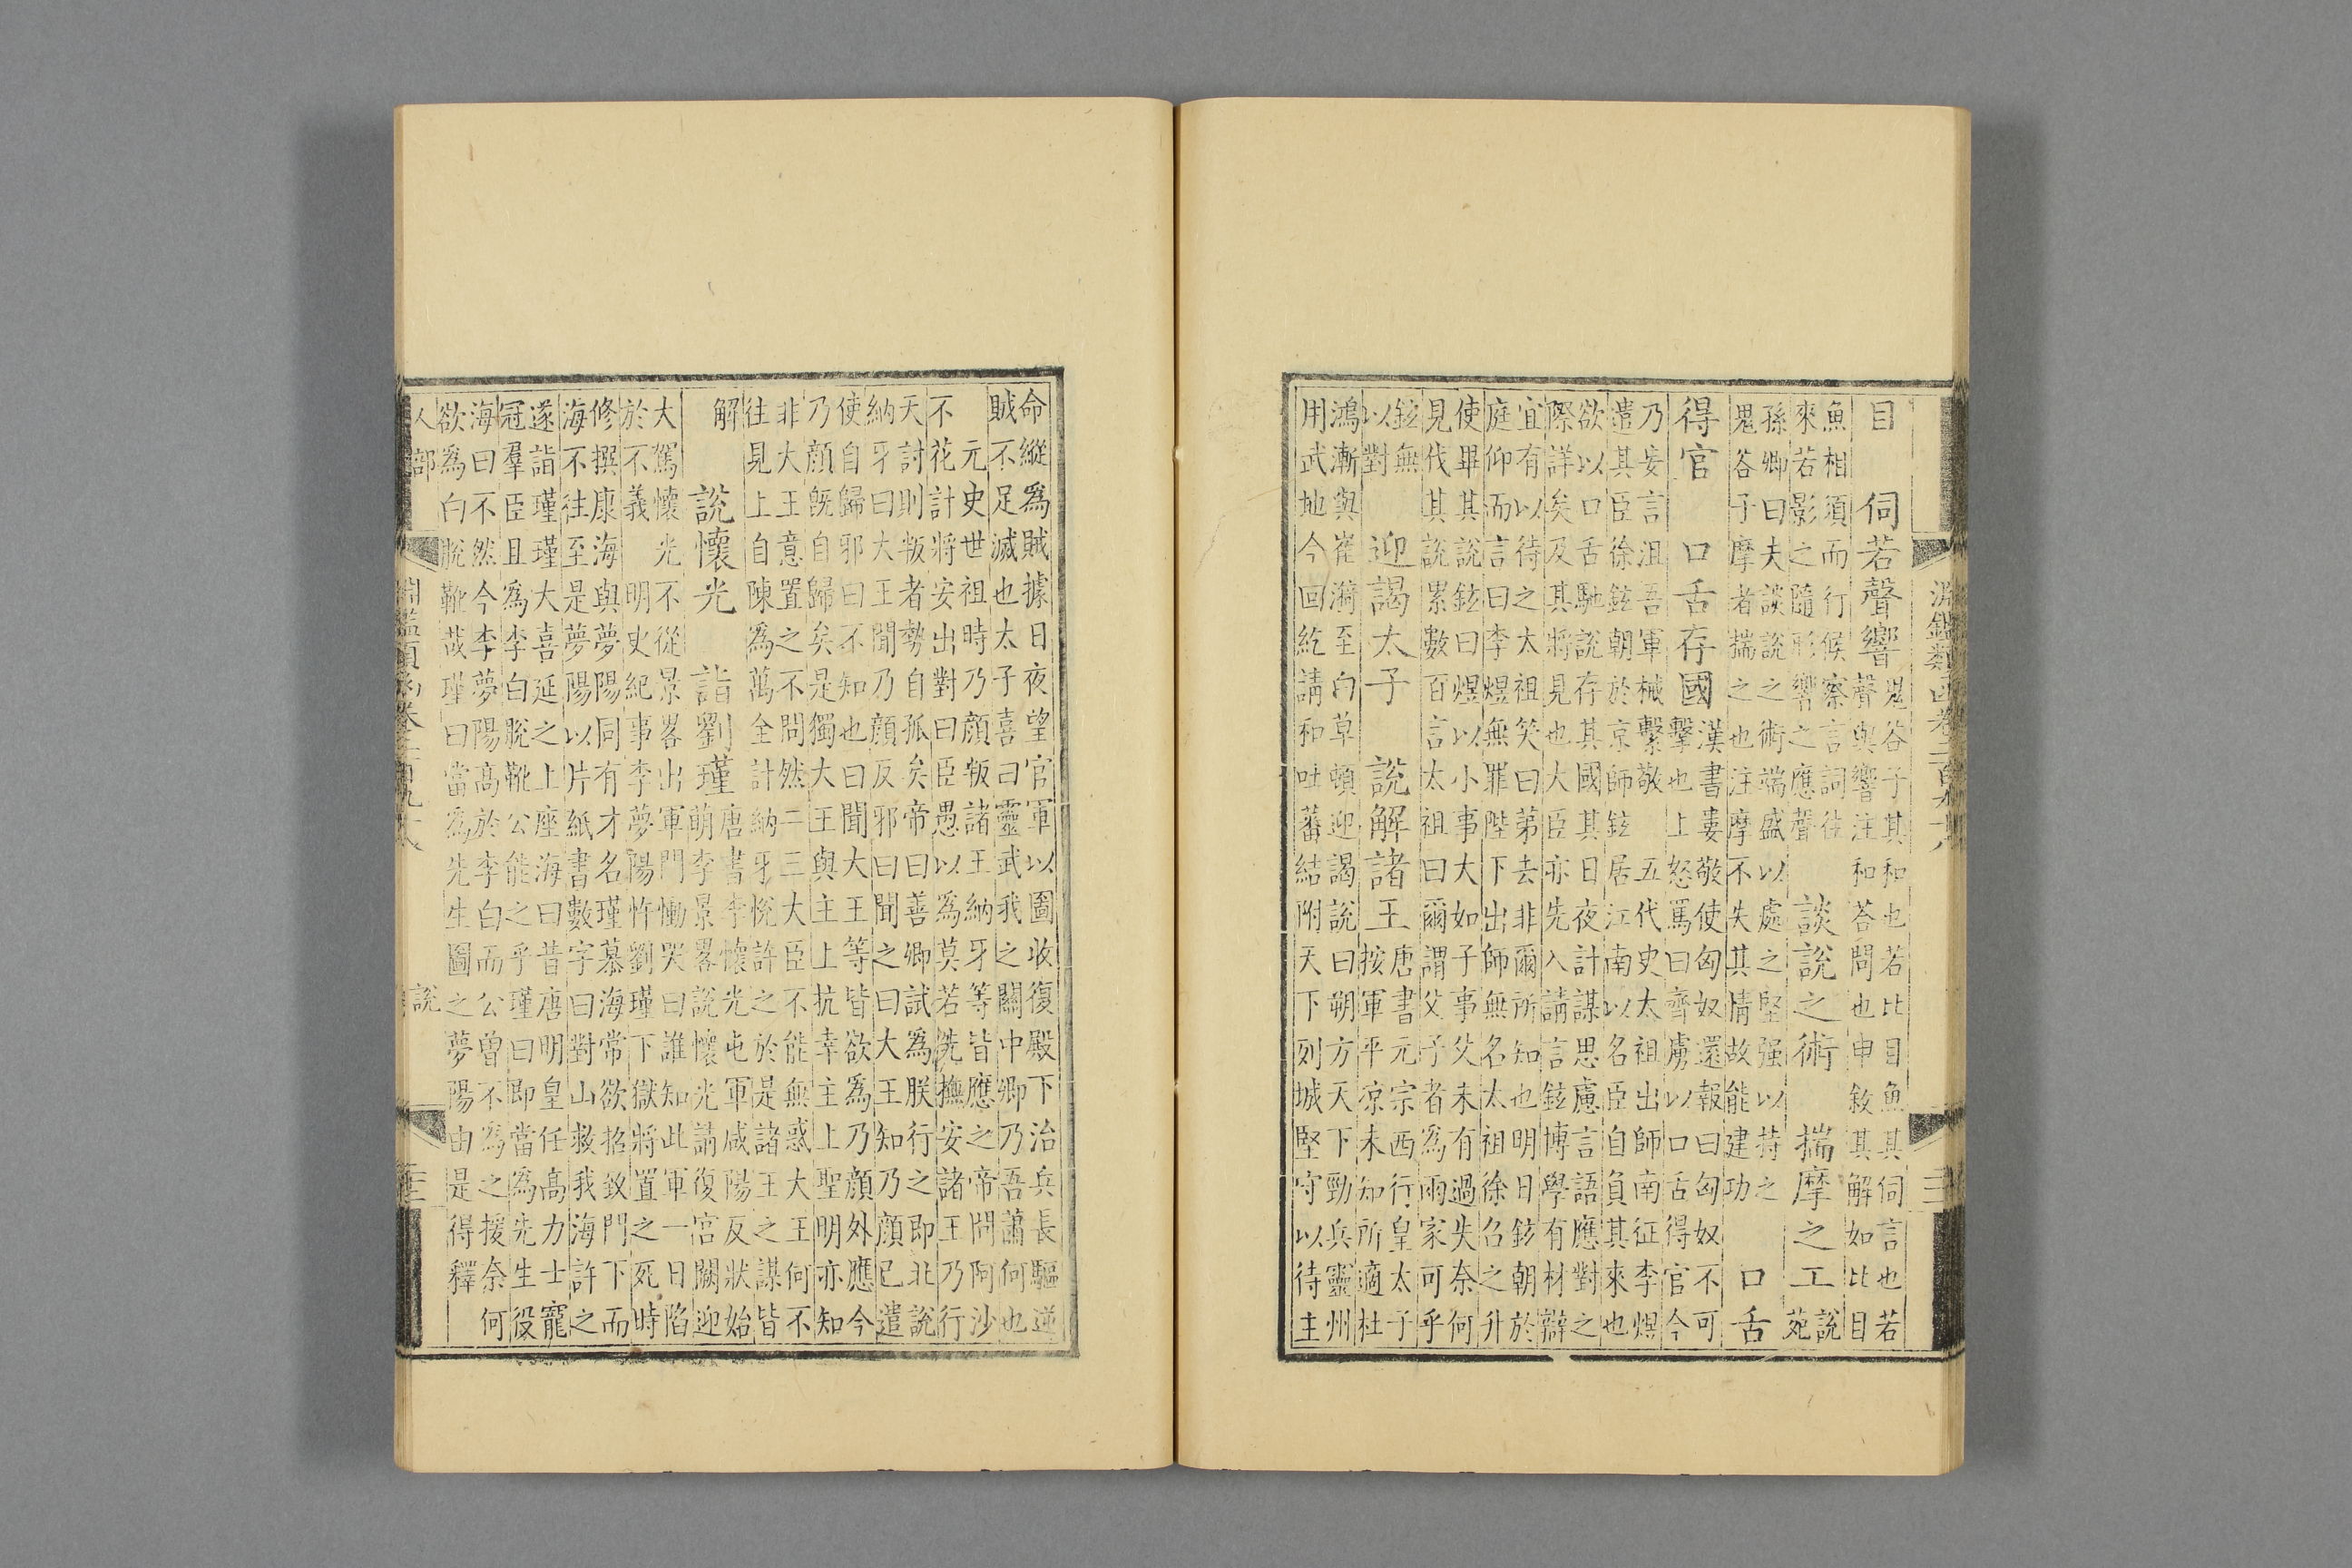 淵鑑類函卷二百九十八 三
目 伺若聲響 鬼谷子其和也若比目魚其伺言也若
聲與響注和荅問也申敘其解如比目
魚相須而行候察言詞往
來若影之隨形響之應聲 談說之術 揣摩之工 說
苑
孫卿曰夫談說之術端盛以處之堅强以持之
鬼谷子摩者揣之也注摩不失其情故能建功 口舌
得官 口舌存國 漢書婁敬使匈奴還報曰匈奴不可
擊也上怒罵曰齊虜以口舌得官今
乃妄言沮吾軍械繫敬 五代史太祖出師南征李煜
遣其臣徐鉉朝於京師鉉居江南以名臣自負其來也
欲以口舌馳說存其國其日夜計謀思慮言語應對之
際詳矣及其將見也大臣亦先入請言鉉博學有材辯
宜有以待之太祖笑曰第去非爾所知也明日鉉朝於
庭仰而言曰李煜無罪陛下出師無名太祖徐召之升
使畢其說鉉曰煜以小事大如子事父未有過失奈何
見伐其說累數百言太祖曰爾謂父子者爲兩家可乎
鉉無
以對 迎謁太子 說解諸王 唐書元宗西行皇太子
按軍平凉未知所適杜
鴻漸與崔漪至白草頓迎謁說曰朔方天下勁兵靈州
用武地今回紇請和吐蕃結附天下列城堅守以待主
命縱爲賊據日夜望官軍以圖收復殿下治兵長驅逆
賊不足滅也太子喜曰靈武我之關中卿乃吾蕭何也
元史世祖時乃顏叛諸王納牙等皆應之帝問阿沙
不花計將安出對曰臣愚以爲莫若先撫安諸王乃行
天討則叛者勢自孤矣帝曰善卿試爲朕行之即北說
納牙曰大王聞乃顏反邪曰聞之曰大王知乃顏已遣
使自歸邪曰不知也曰聞大王等皆欲爲乃顏外應今
乃顏旣自歸矣是獨大王與主上抗幸主上聖明亦知
非大王意置之不問然二三大臣不能無惑大王何不
往見上自陳爲萬全計納牙悅許之於是諸王之謀皆
解 說懷光 詣劉瑾 唐書李懷光屯軍咸陽反狀始
萌李景畧說懷光請復宮闕迎
大駕懷光不從景畧出軍門慟哭曰誰知此軍一日陷
於不義 明史紀事李夢陽忤劉瑾下獄將置之死時
修撰康海與夢陽同有才名瑾慕海常欲招致門下而
海不往至是夢陽以片紙書數字曰對山救我海許之
遂詣瑾瑾大喜延之上座海曰昔唐明皇任高力士寵
冠羣臣且爲李白脫靴公能之乎瑾曰即當爲先生役
海曰不然今李夢陽高於李白而公曾不爲之援奈何
欲爲白脫靴哉瑾曰當爲先生圖之夢陽由是得釋
人部 淵鑑類函卷二百九十八 說